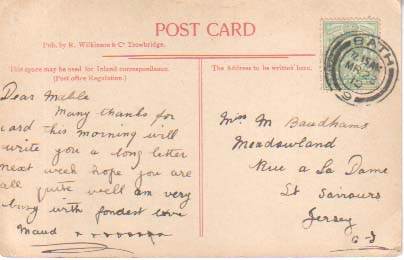 POST CARD
Pub. by R. Wilkinson & Co Trowbridge.
This space may be used for Inland correspondence.
(Post office Regulation.)
The Address to be written here.
BATH
9
Dear Mable
Many thanks for
card this morning will
write you a long letter
next week hope you are
all quite well am very
busy with fondest love
Maud x x x x x x x x
Miss M Baudhams
Meadowland
Rue a La Dame
St Saviours
Jersey
C-I